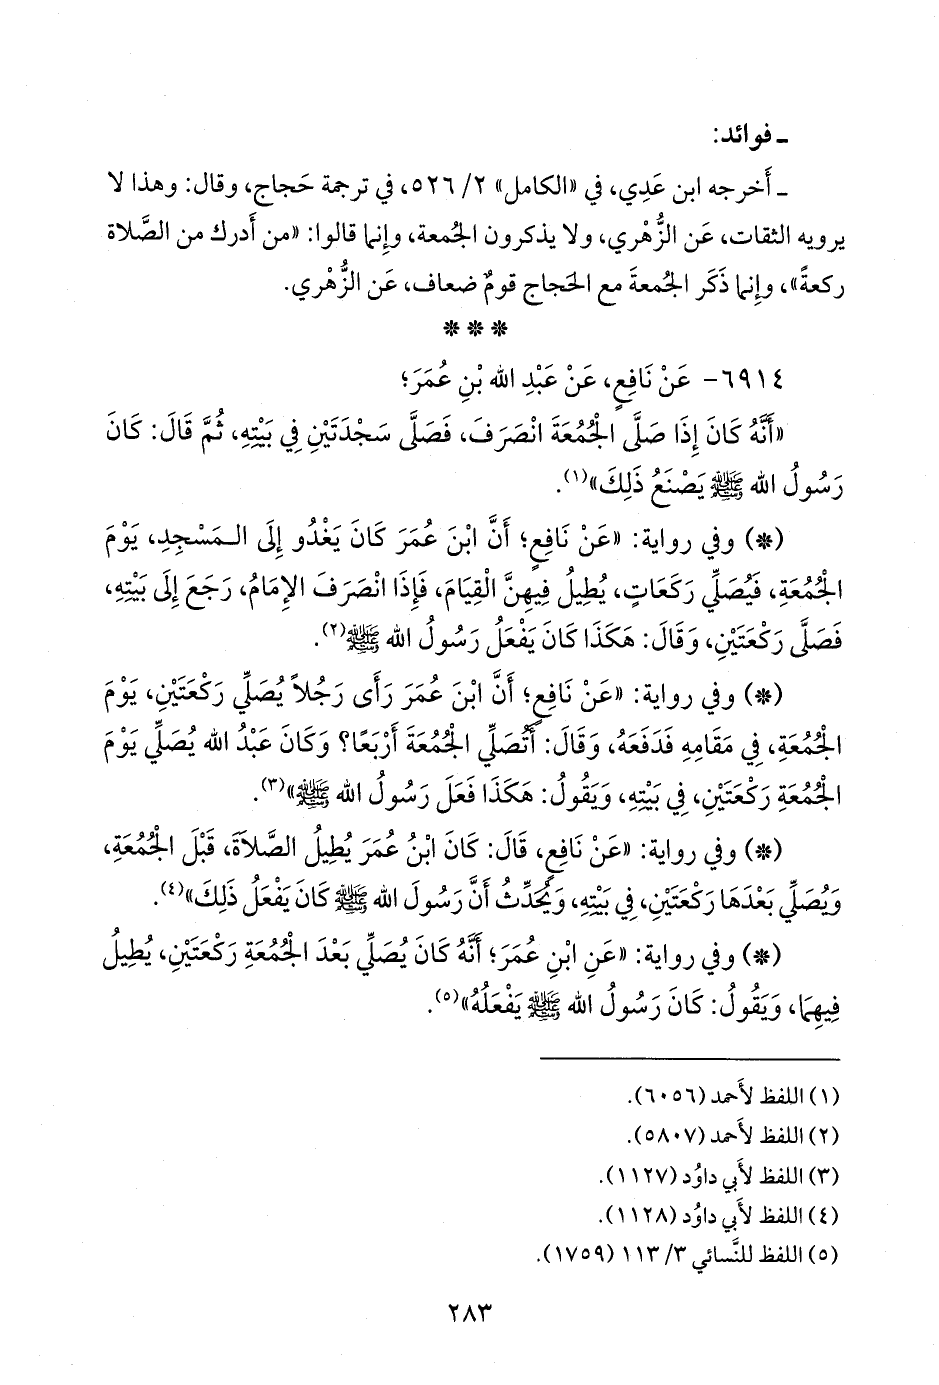 ـ فوائد:
ـ أَخرجه ابن عَدِي، في «الكامل» ٢/ ٥٢٦، في ترجمة حَجاج، وقال: وهذا لا
يرويه الثقات، عَن الزُّهْري، ولا يذكرون الجُمعة، وإِنما قالوا: «من أَدرك من الصَّلاة
ركعةً»، وإِنما ذَكَر الجُمعةَ مع الحَجاج قومٌ ضعاف، عَن الزُّهْري.
* * *
٦٩١٤- عَنْ نَافِعٍ، عَنْ عَبْدِ الله بْنِ عُمَرَ؛
«أَنَّهُ كَانَ إِذَا صَلَّى الْجُمُعَةَ انْصَرَفَ، فَصَلَّى سَجْدَتَيْنِ فِي بَيْتِهِ، ثُمَّ قَالَ: كَانَ
رَسُولُ الله ﷺ يَصْنَعُ ذَلِكَ»(١).
(*) وفي رواية: «عَنْ نَافِعٍ؛ أَنَّ ابْنَ عُمَرَ كَانَ يَغْدُو إِلَى الـمَسْجِدِ، يَوْمَ
الْجُمُعَةِ، فَيُصَلِّي رَكَعَاتٍ، يُطِيلُ فِيهِنَّ الْقِيَامَ، فَإِذَا انْصَرَفَ الإِمَامُ، رَجَعَ إِلَى بَيْتِهِ،
فَصَلَّى رَكْعَتَيْنِ، وَقَالَ: هَكَذَا كَانَ يَفْعَلُ رَسُولُ الله ﷺ(٢).
(*) وفي رواية: «عَنْ نَافِعٍ؛ أَنَّ ابْنَ عُمَرَ رَأَى رَجُلاً يُصَلِّي رَكْعَتَيْنِ، يَوْمَ
الْجُمُعَةِ، فِي مَقَامِهِ فَدَفَعَهُ، وَقَالَ: أَتُصَلِّي الْجُمُعَةَ أَرْبَعًا؟ وَكَانَ عَبْدُ الله يُصَلِّي يَوْمَ
الْجُمُعَةِ رَكْعَتَيْنِ، فِي بَيْتِهِ، وَيَقُولُ: هَكَذَا فَعَلَ رَسُولُ الله ﷺ»(٣).
(*) وفي رواية: «عَنْ نَافِعٍ، قَالَ: كَانَ ابْنُ عُمَرَ يُطِيلُ الصَّلاَةَ، قَبْلَ الْجُمُعَةِ،
وَيُصَلِّي بَعْدَهَا رَكْعَتَيْنِ، فِي بَيْتِهِ، وَيُحَدِّثُ أَنَّ رَسُولَ الله ﷺ كَانَ يَفْعَلُ ذَلِكَ»(٤).
(*) وفي رواية: «عَنِ ابْنِ عُمَرَ؛ أَنَّهُ كَانَ يُصَلِّي بَعْدَ الْجُمُعَةِ رَكْعَتَيْنِ، يُطِيلُ
فِيهِمَا، وَيَقُولُ: كَانَ رَسُولُ الله ﷺ يَفْعَلُهُ»(٥).
(١) اللفظ لأَحمد (٦٠٥٦).
(٢) اللفظ لأَحمد (٥٨٠٧).
(٣) اللفظ لأَبي داوُد (١١٢٧).
(٤) اللفظ لأَبي داوُد (١١٢٨).
(٥) اللفظ للنَّسائي ٣/ ١١٣ (١٧٥٩).
٢٨٣